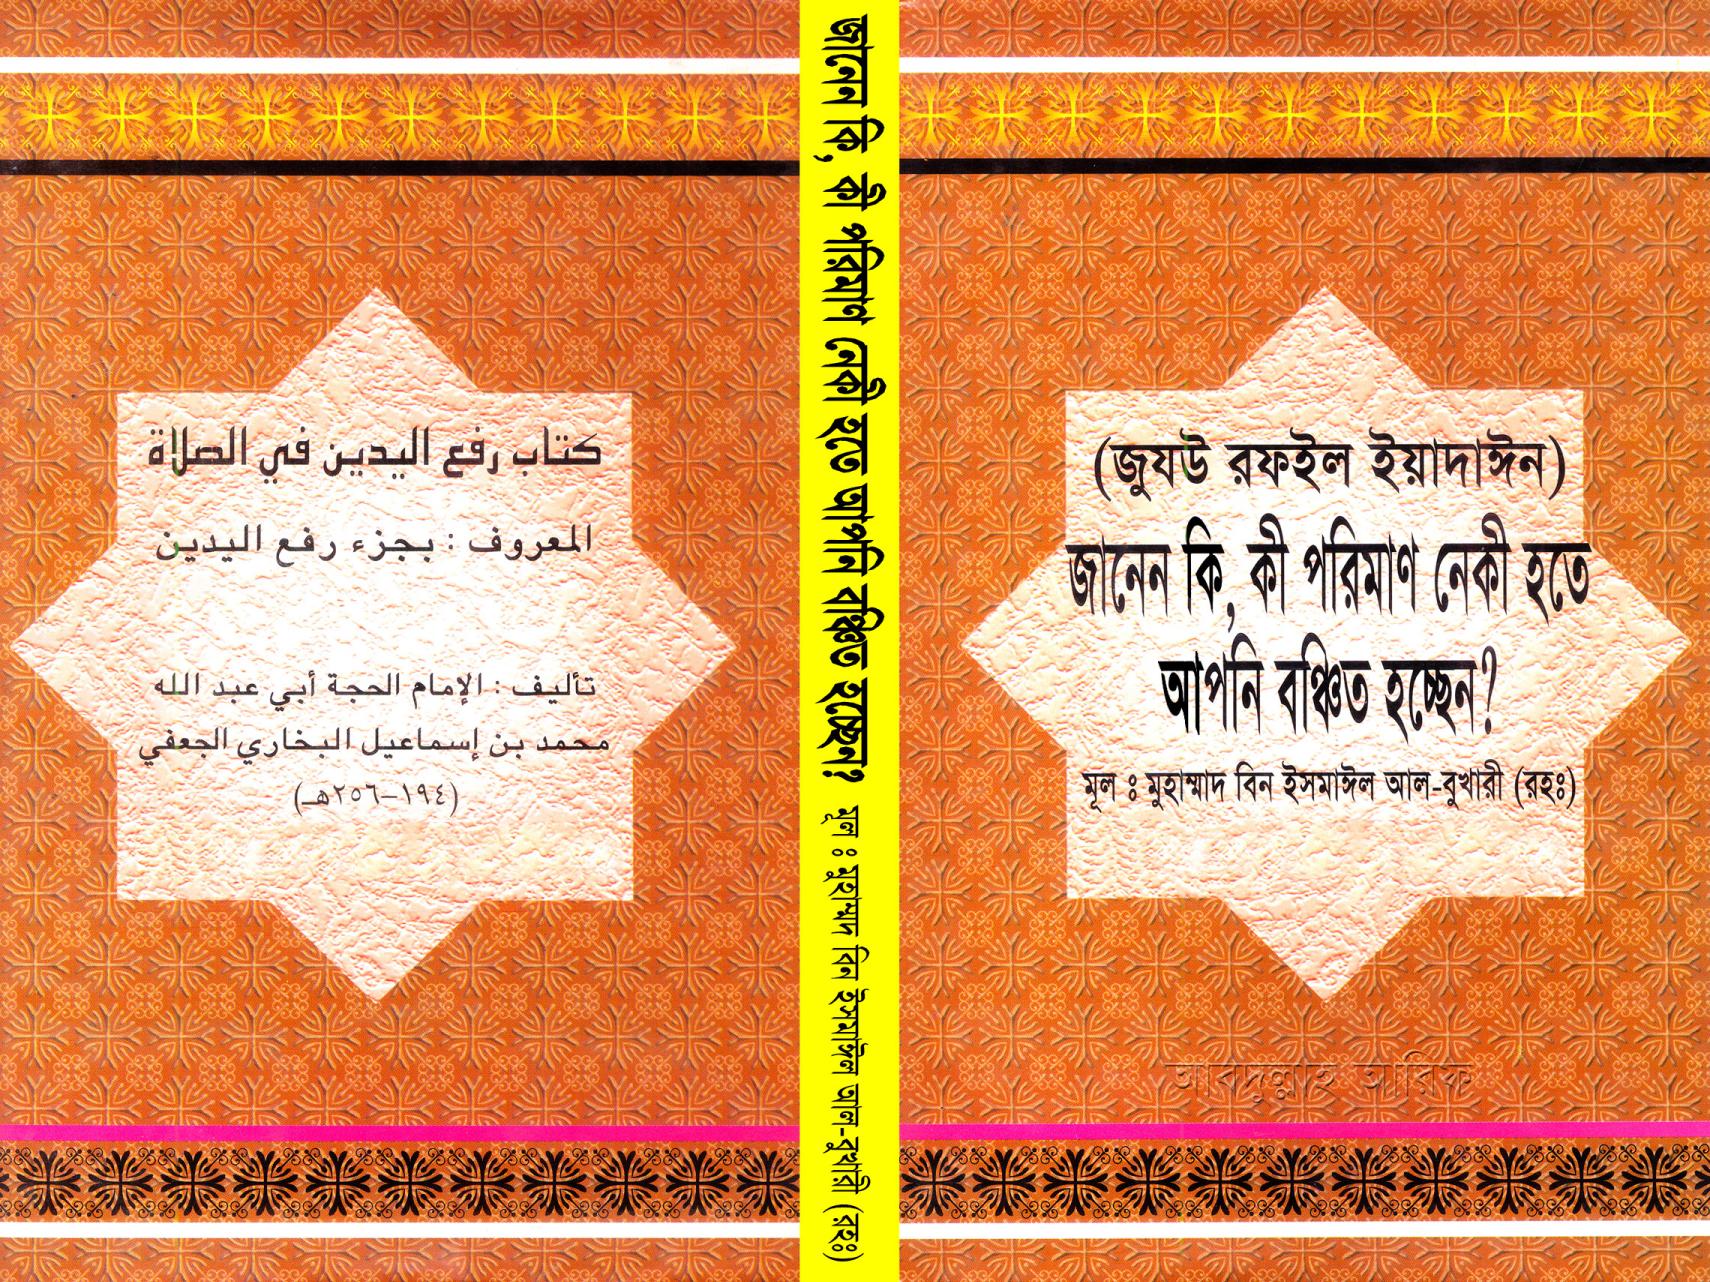 كتاب رفع اليدين في الصلاة
المعروف : بجزء رفع اليدين
تأليف : الإمام الحجة أبي عبد الله
محمد بن إسماعيل البخاري الجعفي
(١٩٤–٢٥٦هـ)
জানেন কি, কী পরিমাণ নেকী হতে আপনি বঞ্চিত হচ্ছেন? মূল ঃ মুহাম্মাদ বিন ইসমাঈল আল-বুখারী (রহঃ)
(জুযউ রফইল ইয়াদাঈন)
জানেন কি, কী পরিমাণ নেকী হতে
আপনি বঞ্চিত হচ্ছেন?
মূল ঃ মুহাম্মাদ বিন ইসমাঈল আল-বুখারী (রহঃ)
আবদুল্লাহ আরিফ